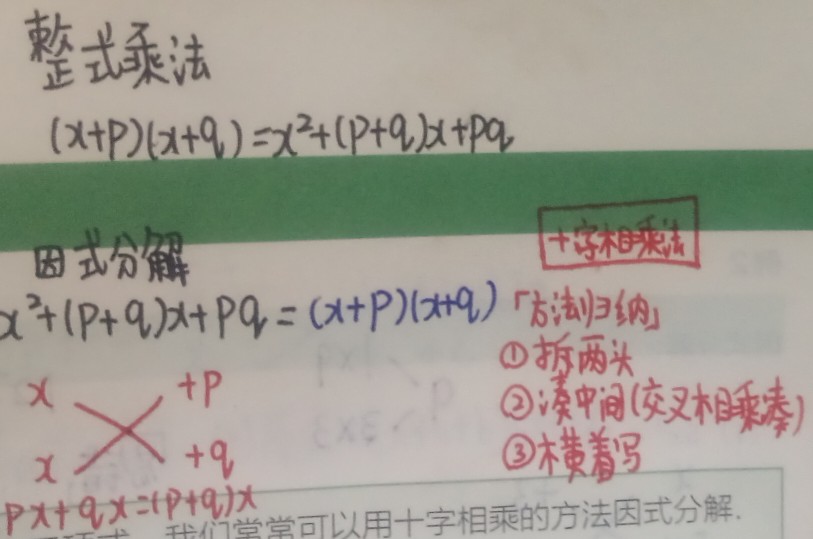 整式乘法
(x+p)(x+q)=x²+(p+q)x+pq
因式分解
十字相乘法
x²+(p+q)x+pq=(x+p)(x+q)
「方法归纳」
①拆两头
x +p
②凑中间(交叉相乘凑)
x +q
③横着写
px+qx=(p+q)x
我们常常可以用十字相乘的方法因式分解.